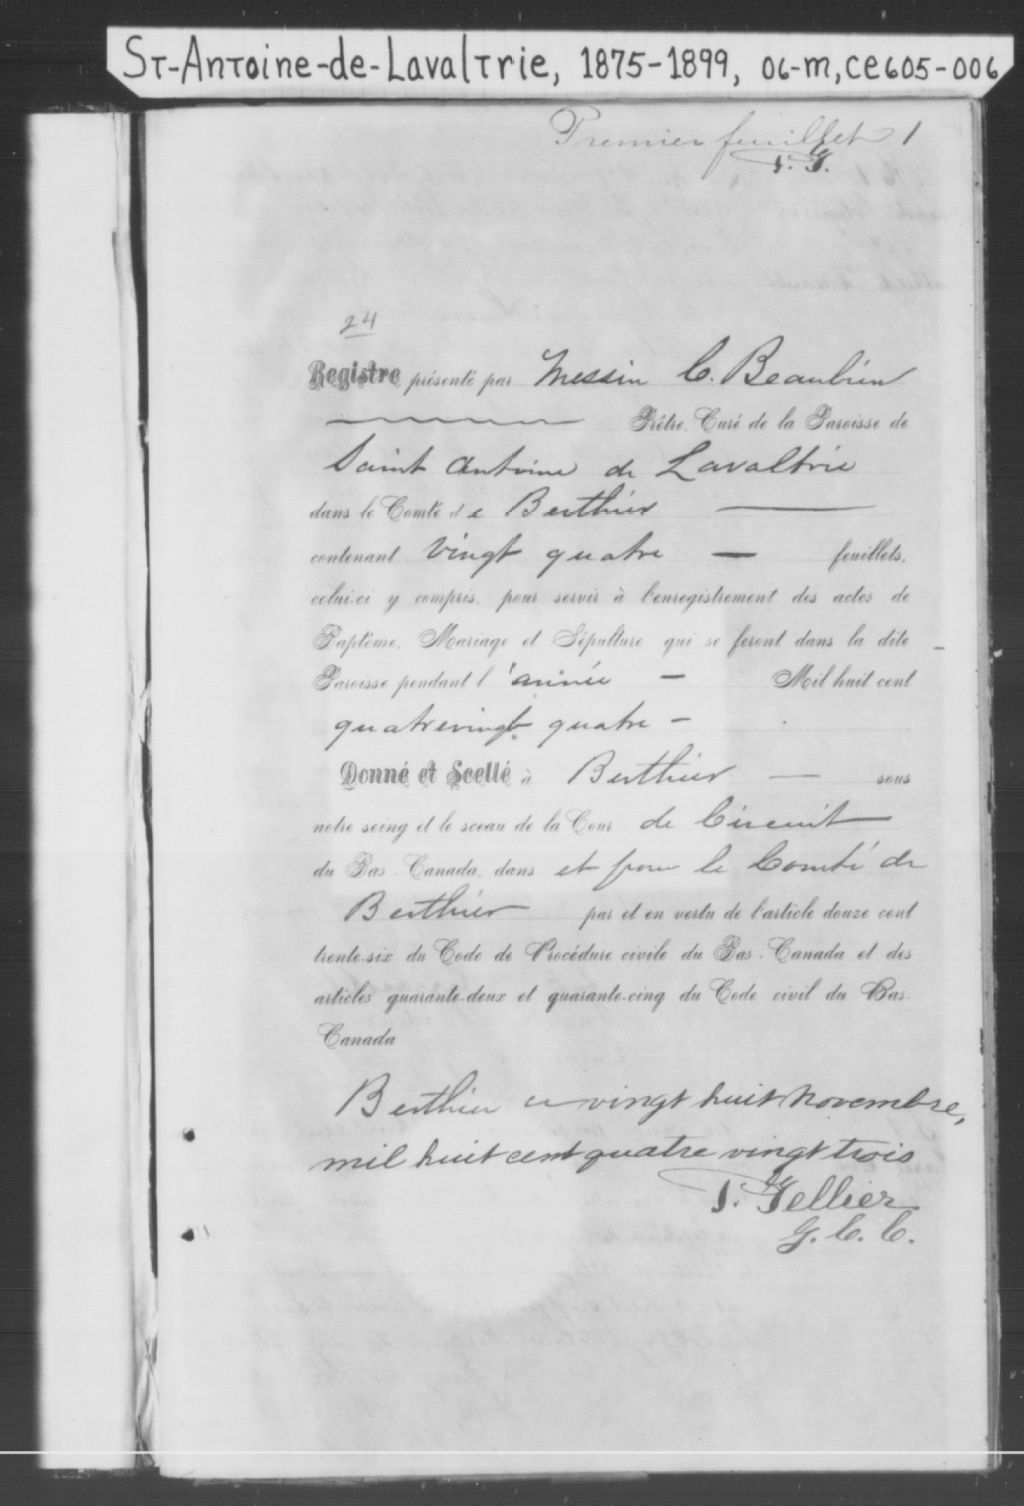 St-Antoine-de-Lavaltrie, 1875-1899, 06-M, CE605-006
Premier feuillet 1
T. G.
24
Registre présenté par Messire C. Beaubien
Prêtre, Curé de la Paroisse de
Saint Antoine de Lavaltrie
dans le Comté de Berthier
contenant Vingt quatre — feuillets,
celui-ci y compris, pour servir à l'enregistrement des actes de
Baptême, Mariage et Sépulture qui se feront dans la dite
Paroisse pendant l'année — Mil huit cent
quatrevingt quatre —
Donné et Scellé à Berthier — sous
notre seing et le sceau de la Cour de Circuit
du Bas-Canada, dans et pour le Comté de
Berthier par et en vertu de l'article douze cent
trente-six du Code de Procédure civile du Bas-Canada et des
articles quarante-deux et quarante-cinq du Code civil du Bas-
Canada
Berthier ce vingt huit Novembre,
mil huit cent quatre vingt trois
Tellier
G. C. C.